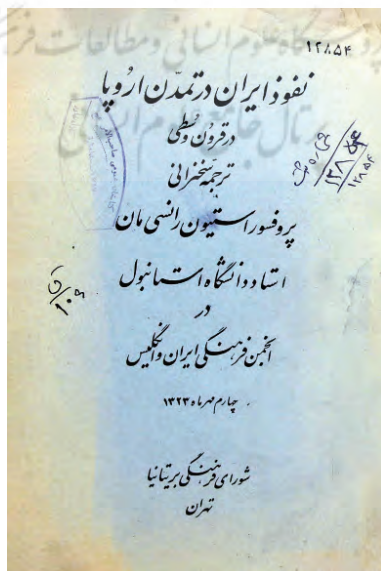 ۱۲۸۵۴
نفوذ ایران در تمدّن اروپا
در قرون وسطی
ترجمه سخنرانی
پروفسور استیون رانسی مان
استاد دانشگاه استانبول
در
انجمن فرهنگی ایران و انگلیس
چهارم مهرماه ۱۳۲۳
شورای فرهنگی بریتانیا
تهران
۱۲۸۵۴